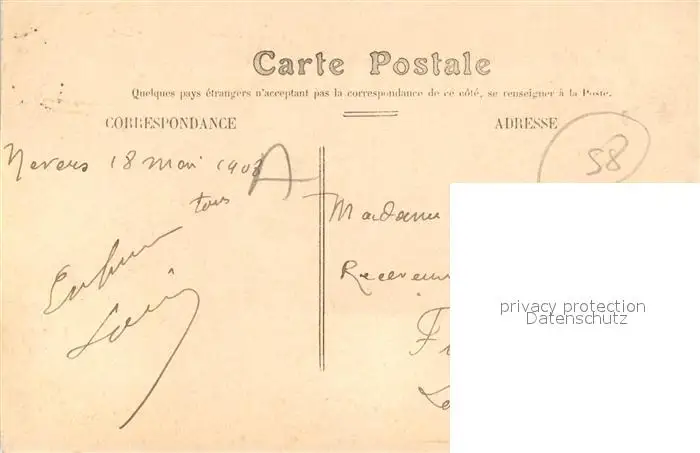 Carte Postale
Quelques pays étrangers n'acceptant pas la correspondance de ce côté, se renseigner à la Poste.
CORRESPONDANCE
ADRESSE
58
Nevers 18 mai 1903
A
tous
Madame
Louis
privacy protection
Datenschutz